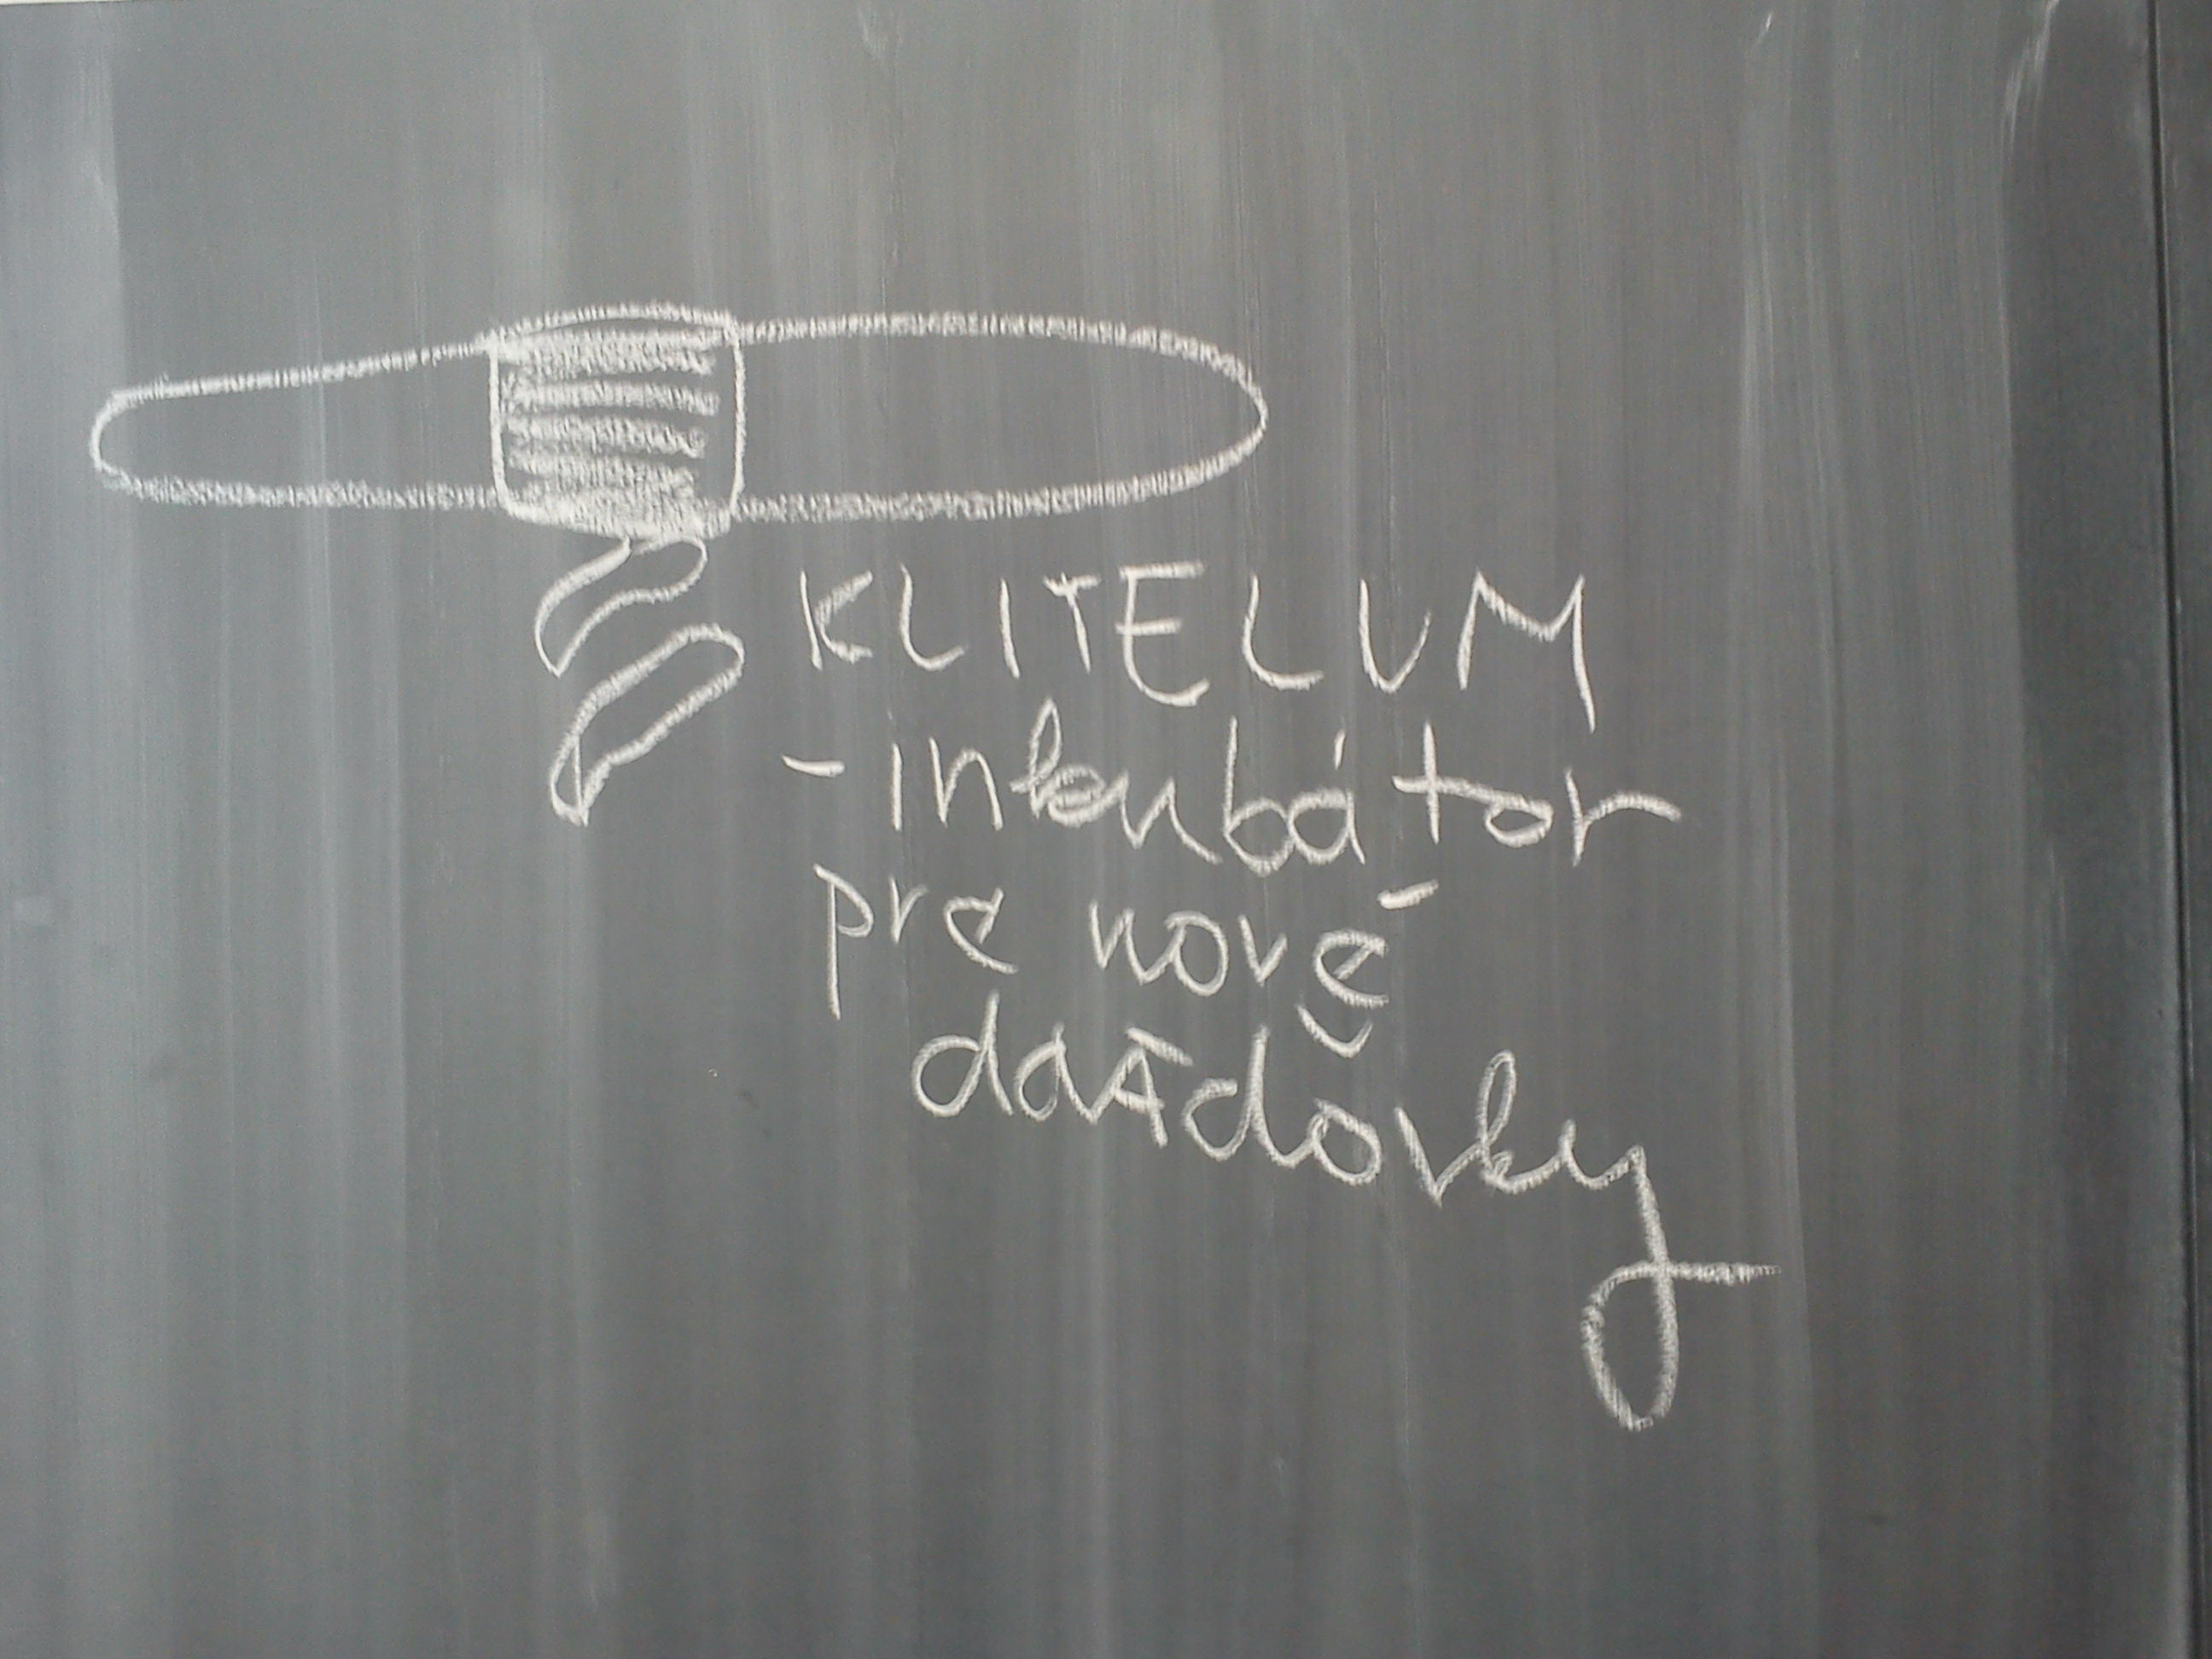 KLITELUM
- inkubátor
pre nové
dažďovky